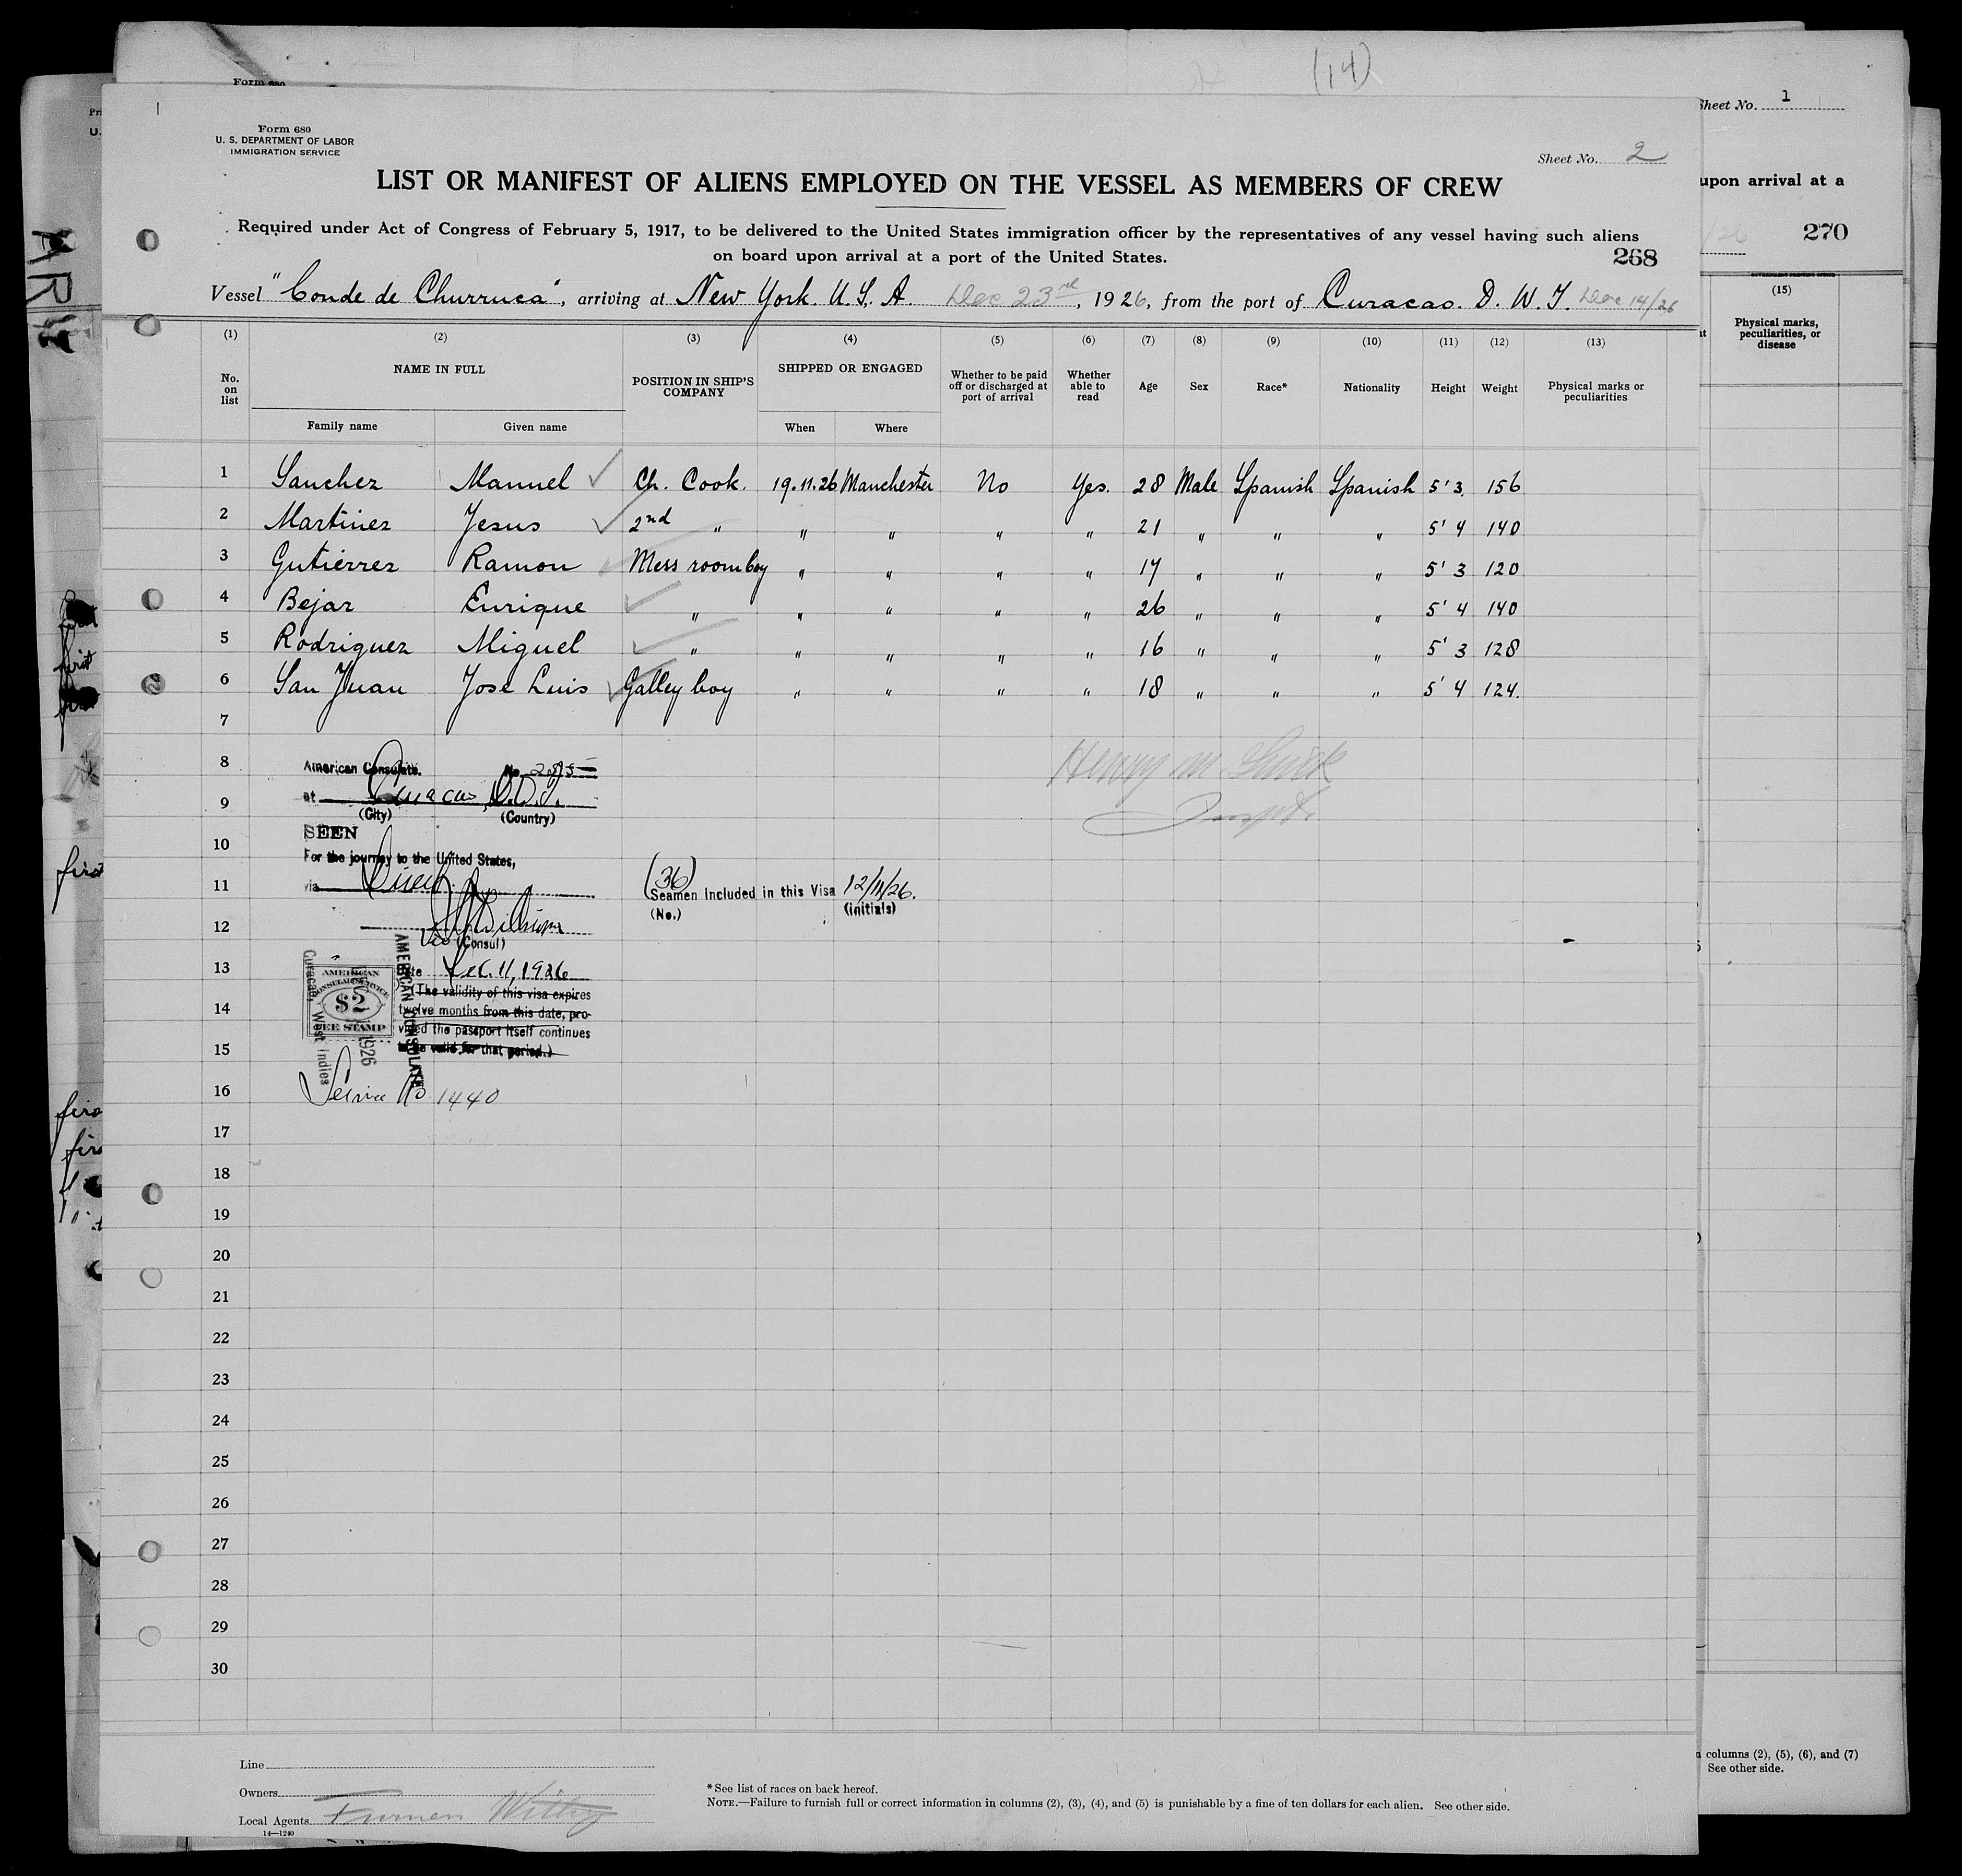 (14)
Form 680
Sheet No. 1
Form 680
U. S. DEPARTMENT OF LABOR
IMMIGRATION SERVICE
Sheet No. 2
LIST OR MANIFEST OF ALIENS EMPLOYED ON THE VESSEL AS MEMBERS OF CREW
upon arrival at a
Required under Act of Congress of February 5, 1917, to be delivered to the United States immigration officer by the representatives of any vessel having such aliens
on board upon arrival at a port of the United States.
268
270
Vessel "Conde de Churruca", arriving at New York. U.S.A. Dec 23rd, 1926, from the port of Curacao. D. W. I. Dec 14/26
(1) (2) (3) (4) (5) (6) (7) (8) (9) (10) (11) (12) (13)
(15)
Physical marks, peculiarities, or disease
No. on list NAME IN FULL POSITION IN SHIP'S COMPANY SHIPPED OR ENGAGED Whether to be paid off or discharged at port of arrival Whether able to read Age Sex Race* Nationality Height Weight Physical marks or peculiarities
Family name Given name When Where
1 Sanchez Manuel Ch. Cook. 19.11.26 Manchester No Yes. 28 Male Spanish Spanish 5'3. 156
2 Martinez Jesus 2nd " " " " " 21 " " " 5'4 140
3 Gutierrez Ramon Mess room boy " " " " 17 " " " 5'3 120
4 Bejar Enrique " " " " " 26 " " " 5'4 140
5 Rodriguez Miguel " " " " " 16 " " " 5'3 128
6 San Juan Jose Luis Galley boy " " " " 18 " " " 5'4 124.
7
8
9
10
11
12
13
14
15
16
17
18
19
20
21
22
23
24
25
26
27
28
29
30
American Consulate. No.
at Curacao, D.W.I.
(City) (Country)
SEEN
For the journey to the United States,
via Direct
(Consul)
Date Dec. 11, 1926
(The validity of this visa expires
twelve months from this date, pro-
vided the passport itself continues
to be valid for that period.)
AMERICAN
CONSULAR SERVICE
$2
FEE STAMP
AMERICAN CONSULATE
Curacao, West Indies
1926
Service No 1440
(36)
Seamen Included in this Visa 12/11/26.
(No.) (initials)
Henry M.
Insptr.
Line
Owners
Local Agents Furness Withy
14—1240
*See list of races on back hereof.
NOTE.—Failure to furnish full or correct information in columns (2), (3), (4), and (5) is punishable by a fine of ten dollars for each alien. See other side.
columns (2), (5), (6), and (7)
See other side.